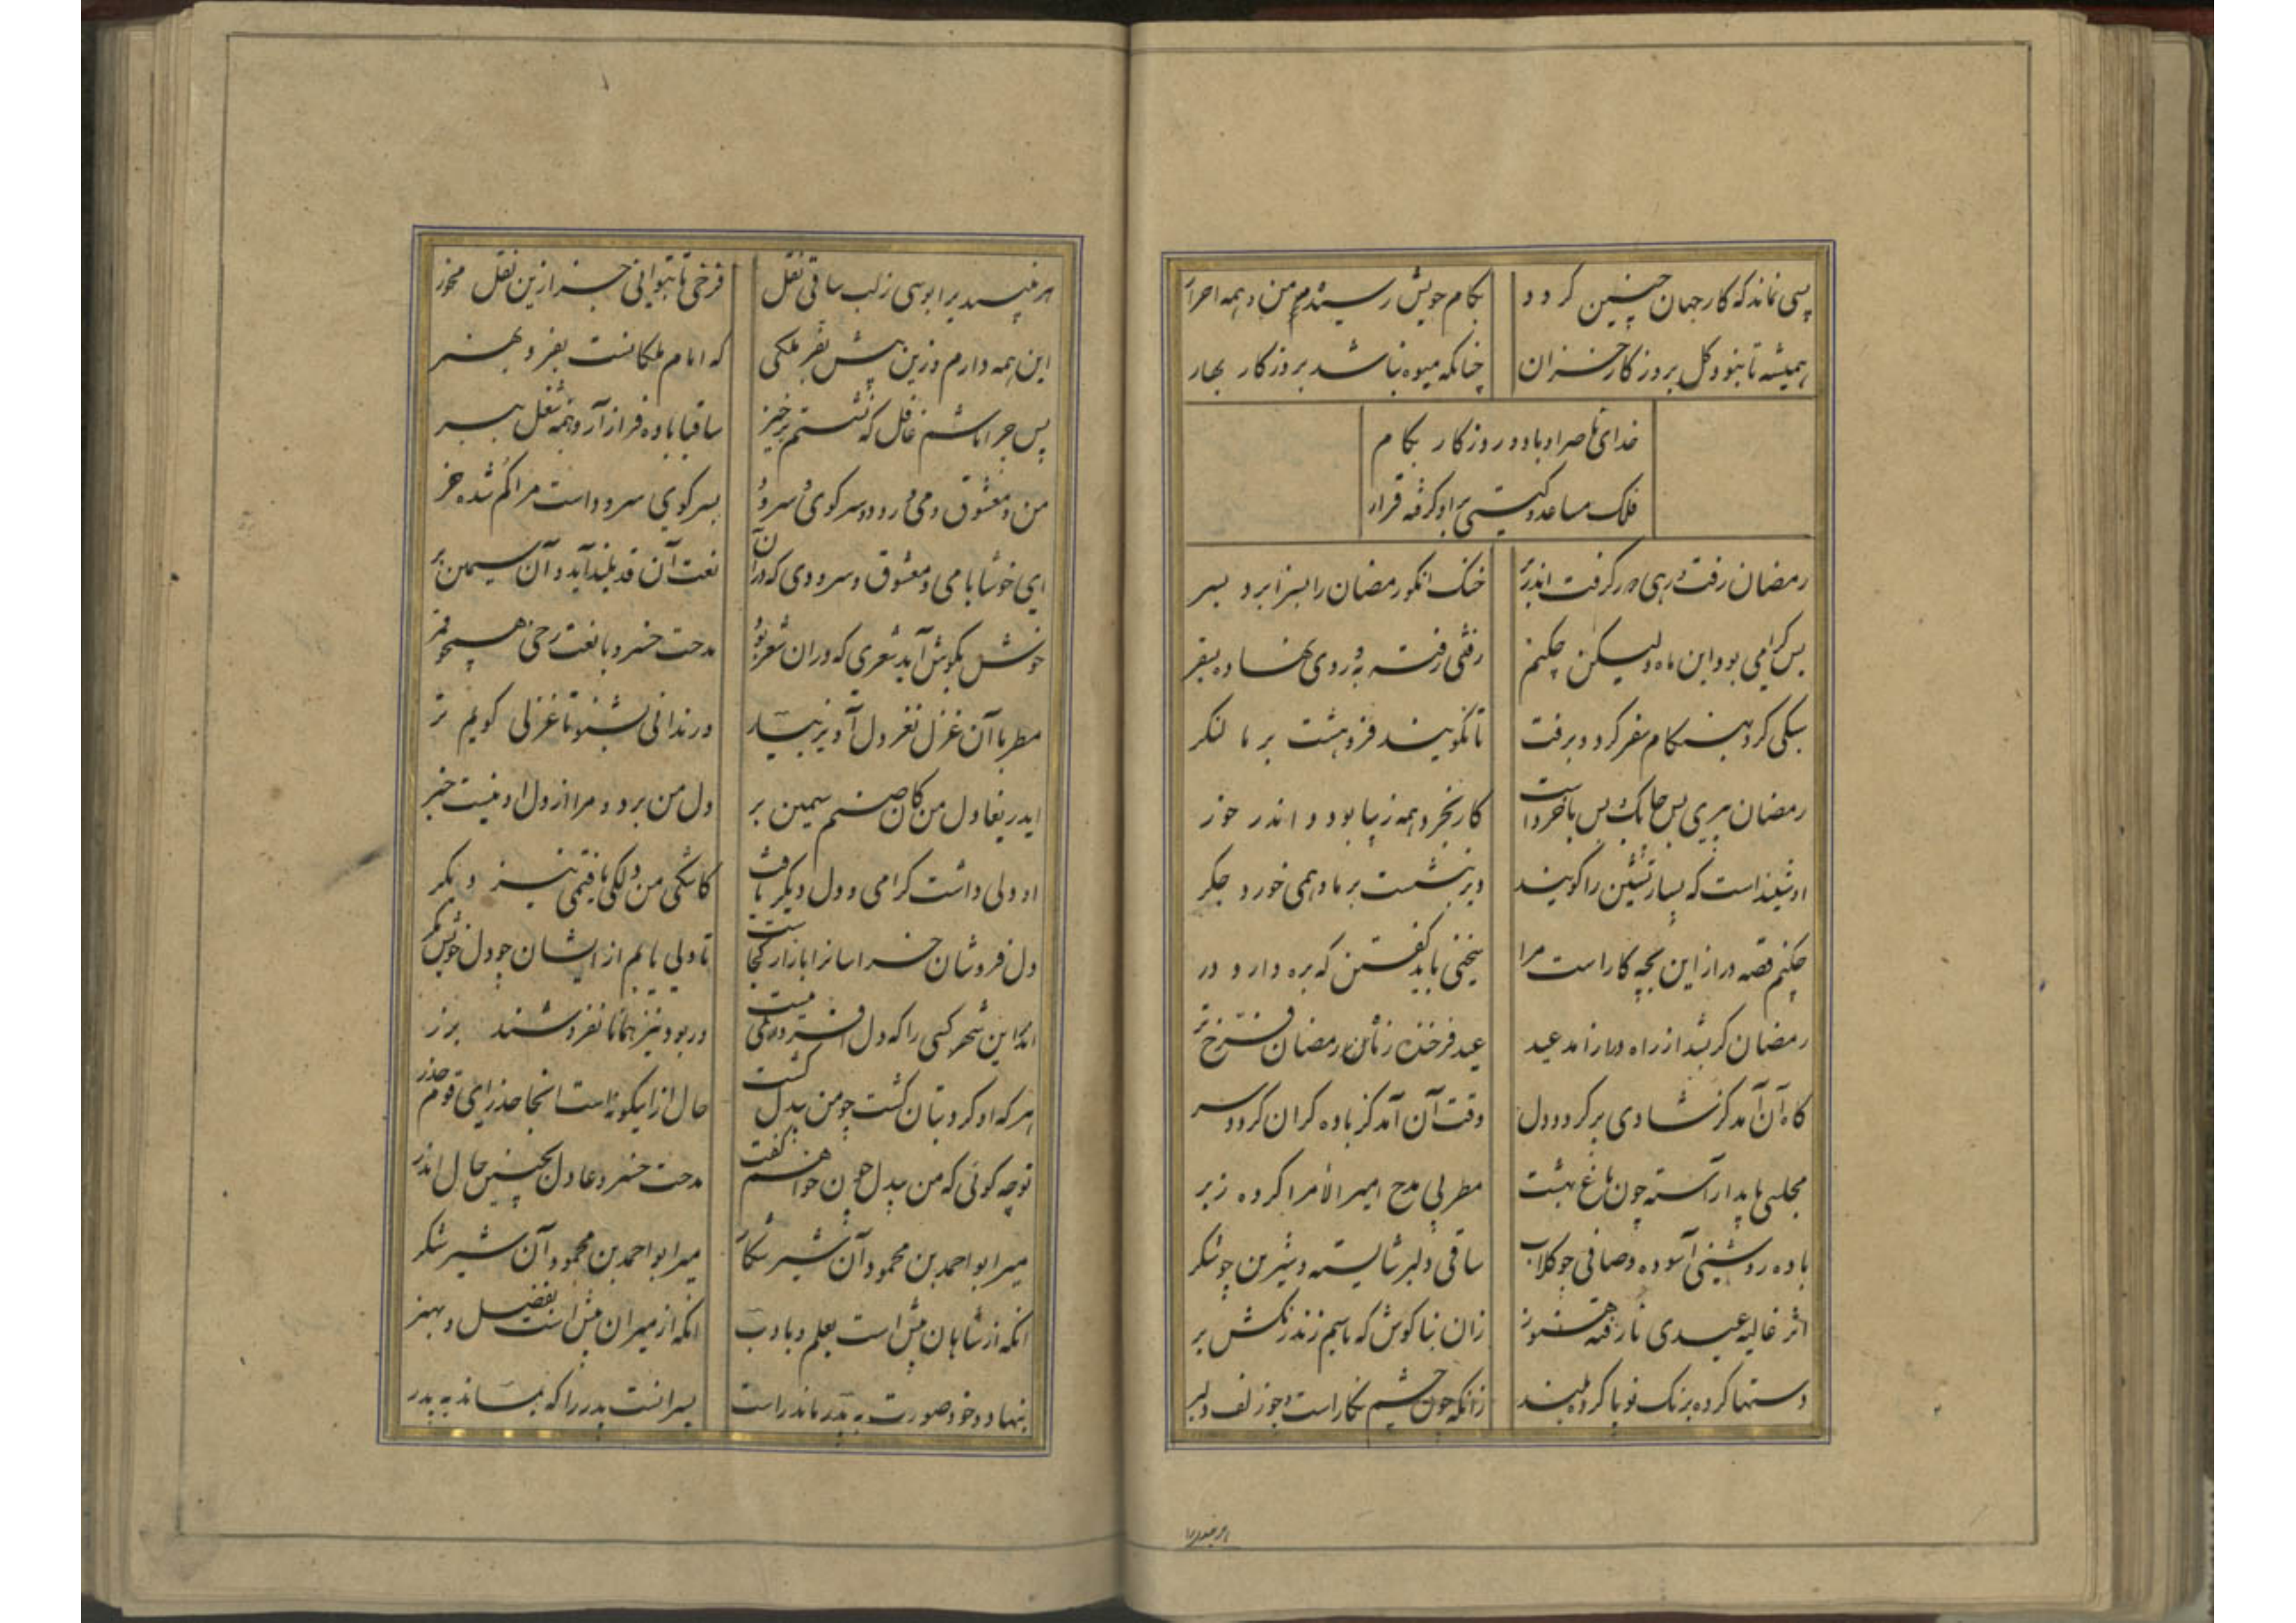 بسی نماند که کار جهان چنین گردد بکام خویش رسیده من و همه احرار
همیشه تا نبود گل بروزگار خزان چنانکه میوه نباشد بروزگار بهار
خدای ناصر او باد و روزگار بکام
فلک مساعد و گیتی بر او گرفته قرار
رمضان رفت و رهی دور گرفت اندر بر خنک آنکو رمضان را بسزا برد بسر
بس گرامی بود این ماه ولیکن چکنم رفتنی رفته به و روی نهاده بسفر
سبکی کرد و بهنگام سفر کرد و برفت تا نگویند فروهشت بر ما لنگر
رمضان پیری بس چابک و بس باخرد است کار بخرد همه زیبا بود و اندر خور
او شنیده است که بسیار نشین را گویند دیر بنشست بر ما و همی خورد جگر
چکنم قصه دراز این بچه کار است مرا سخنی باید گفتن که بره دارد در
رمضان گر بشد از راه فراز آمد عید عید فرخنده ز ماه رمضان فرخ تر
گاه آن آمد کز شادی پر گردد دل وقت آن آمد کز باده گران گردد سر
مجلسی باید آراسته چون باغ بهشت مطربی مدح امیر الامرا کرده ز بر
باده روشن و آسوده و صافی چو گلاب ساقی دلبر شایسته و شیرین چو شکر
اثر غالیه عیدی نارفته هنوز زان بناگوش که با سیم زند رنگش بر
دستها کرده برنگ نو پا کرده بلند زانکه چون چشم نگار است و چو زلف دلبر
هر نبیدی را بوسی ز لب ساقی نقل فرخی تا بتوانی جز ازین نقل مخور
این همه دارم و زین بیش بفر ملکی که امام ملکانست بفر و بهنر
پس چرا باشم غافل که نشستم برخیز ساقیا باده فراز آر و همه شغل ببر
من و معشوق و می و رود و سر کوی سرود بسر کوی سرود است مرا گم شده خر
ای خوشا با می و معشوق و سرودی که در آن نعت آن قد بلند آید و آن سیمین بر
خوش بگوش آید شعری که در آن شعر بود مدحت خسرو با نعت رخی همچو قمر
مطربا آن غزل نغز دل آویز بیار ور ندانی بشنو تا غزلی گویم تر
ای دریغا دل من کان صنم سیمین بر دل من برد و مرا از دل او نیست خبر
او دلی داشت گرامی و دل دیگر یافت کاشکی من دلکی یافتمی نیز دگر
دل فروشان خراسانرا بازار کجاست تا دلی یابم از ایشان چو دل خویش مگر
اندر این شهر کسی را که دل افزونی نیست ور بود نیز همانا نفروشند بزر
هر که او گرد بتان گشت چو من بیدل گشت حال از اینگونه است اینجا حذر ای قوم حذر
تو چه گوئی که من بیدل چون خواهم گفت مدحت خسرو عادل بچنین حال اندر
میر ابو احمد بن محمود آن شیر شکار میر ابو احمد بن محمود آن شیر شکر
آنکه از شاهان پیش است بعلم و بادب آنکه از میران پیش است بفضل و بهنر
بنهاد و خو و صورت به پدر ماند راست پسر آنست پدر را که بماند به پدر